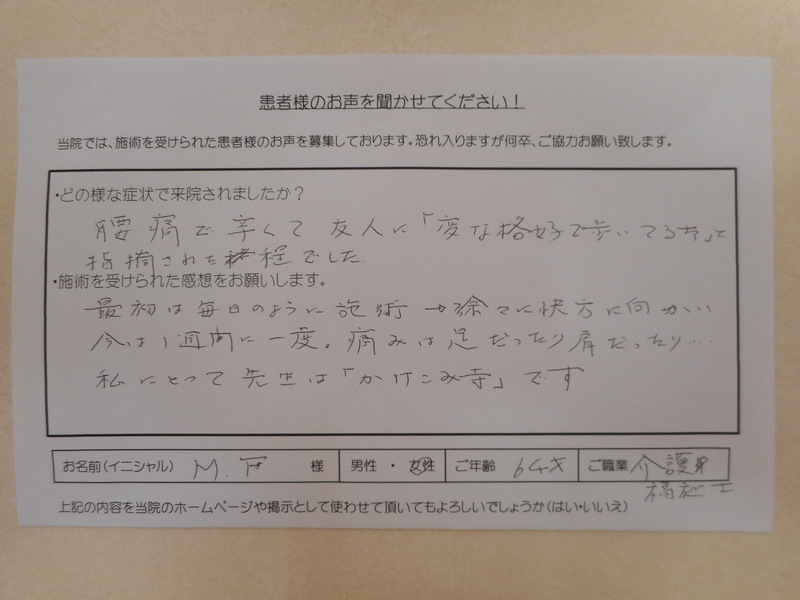 患者様のお声を聞かせてください！
当院では、施術を受けられた患者様のお声を募集しております。恐れ入りますが何卒、ご協力お願い致します。
・どの様な症状で来院されましたか？
腰痛で辛くて友人に「変な格好で歩いてるネ」と
指摘された程でした
・施術を受けられた感想をお願いします。
最初は毎日のように施術→徐々に快方に向かい
今は1週間に一度。痛みは足だったり肩だったり…
私にとって先生は「かけこみ寺」です
お名前（イニシャル） M.F 様 男性・女性 ご年齢 64才 ご職業 介護
福祉士
上記の内容を当院のホームページや掲示として使わせて頂いてもよろしいでしょうか（はい・いいえ）